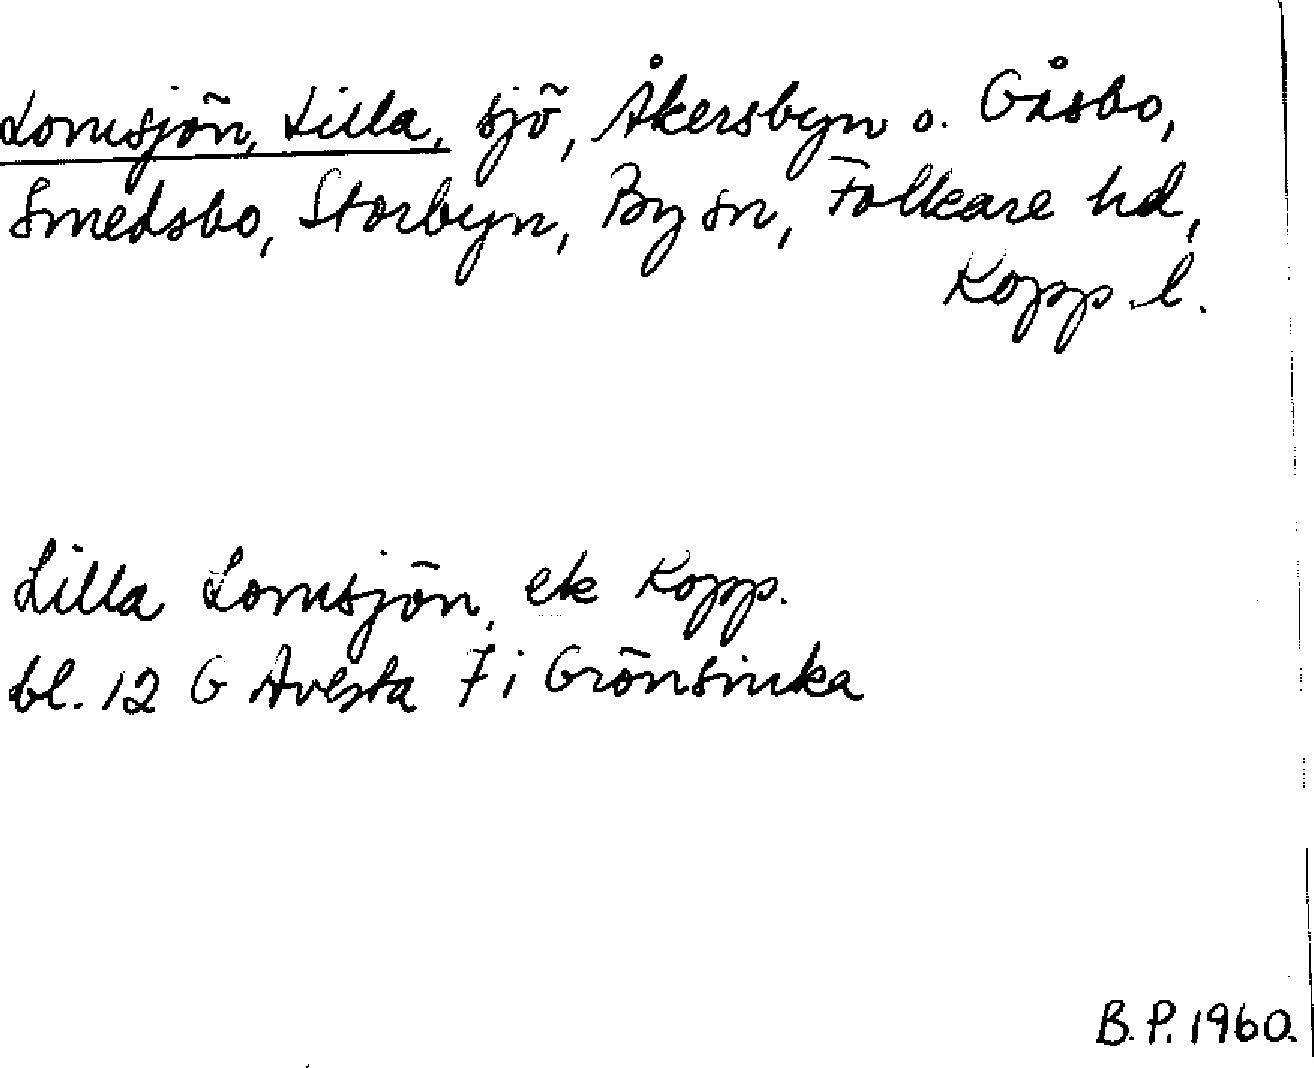 Lomsjön, Lilla, sjö, Åkersbyn o. Gåsbo,
Smedsbo, Storbyn, By sn, Folkare hd,
Kopp. l.
Lilla Lomsjön, ek Kopp.
bl. 12 G Avesta 7 i Grönsinka
B.P. 1960.